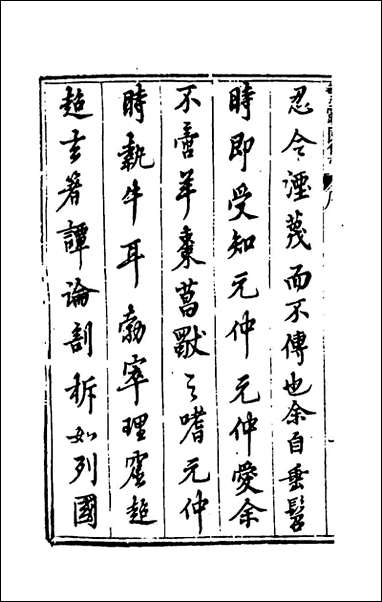 忍令湮蔑而不傳也余自垂髫
時即受知元仲元仲愛余
不啻羊棗菖歜之嗜元仲
時執牛耳勃窣理窟超
超玄著譚論剖析如列國